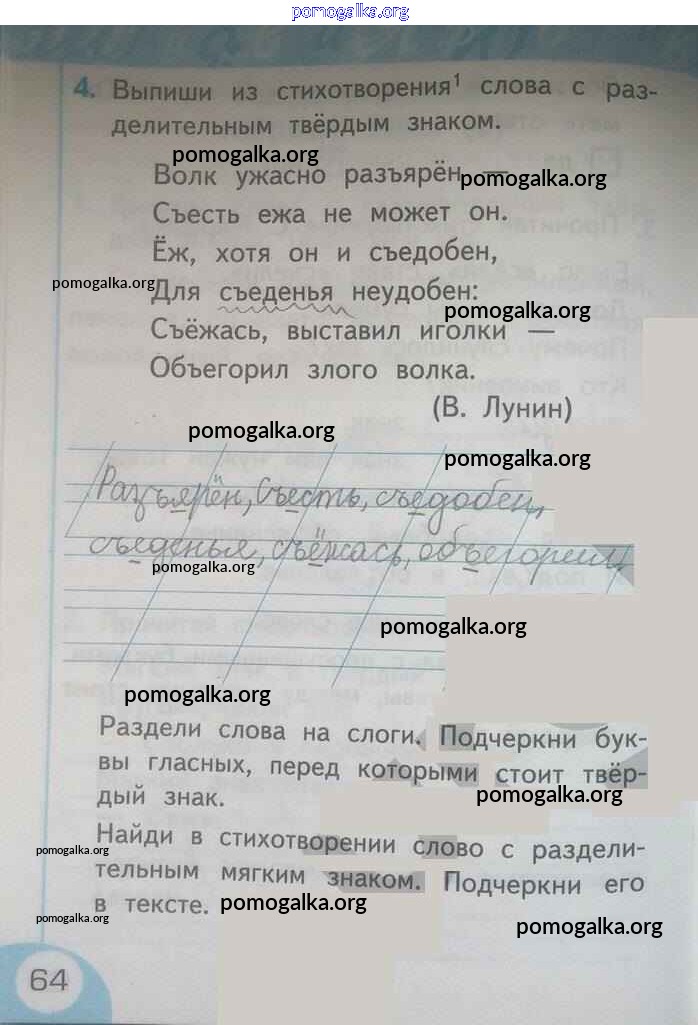 pomogalka.org
4. Выпиши из стихотворения¹ слова с раз-
делительным твёрдым знаком.
pomogalka.org
Волк ужасно разъярён —
pomogalka.org
Съесть ежа не может он.
Ёж, хотя он и съедобен,
pomogalka.org
Для съеденья неудобен:
pomogalka.org
Съёжась, выставил иголки —
Объегорил злого волка.
(В. Лунин)
pomogalka.org
pomogalka.org
Разъярён, съесть, съедобен,
съеденья, съёжась, объегорил,
pomogalka.org
pomogalka.org
pomogalka.org
Раздели слова на слоги. Подчеркни бук-
вы гласных, перед которыми стоит твёр-
pomogalka.org
дый знак.
Найди в стихотворении слово с раздели-
pomogalka.org
тельным мягким знаком. Подчеркни его
в тексте.
pomogalka.org
pomogalka.org
pomogalka.org
64